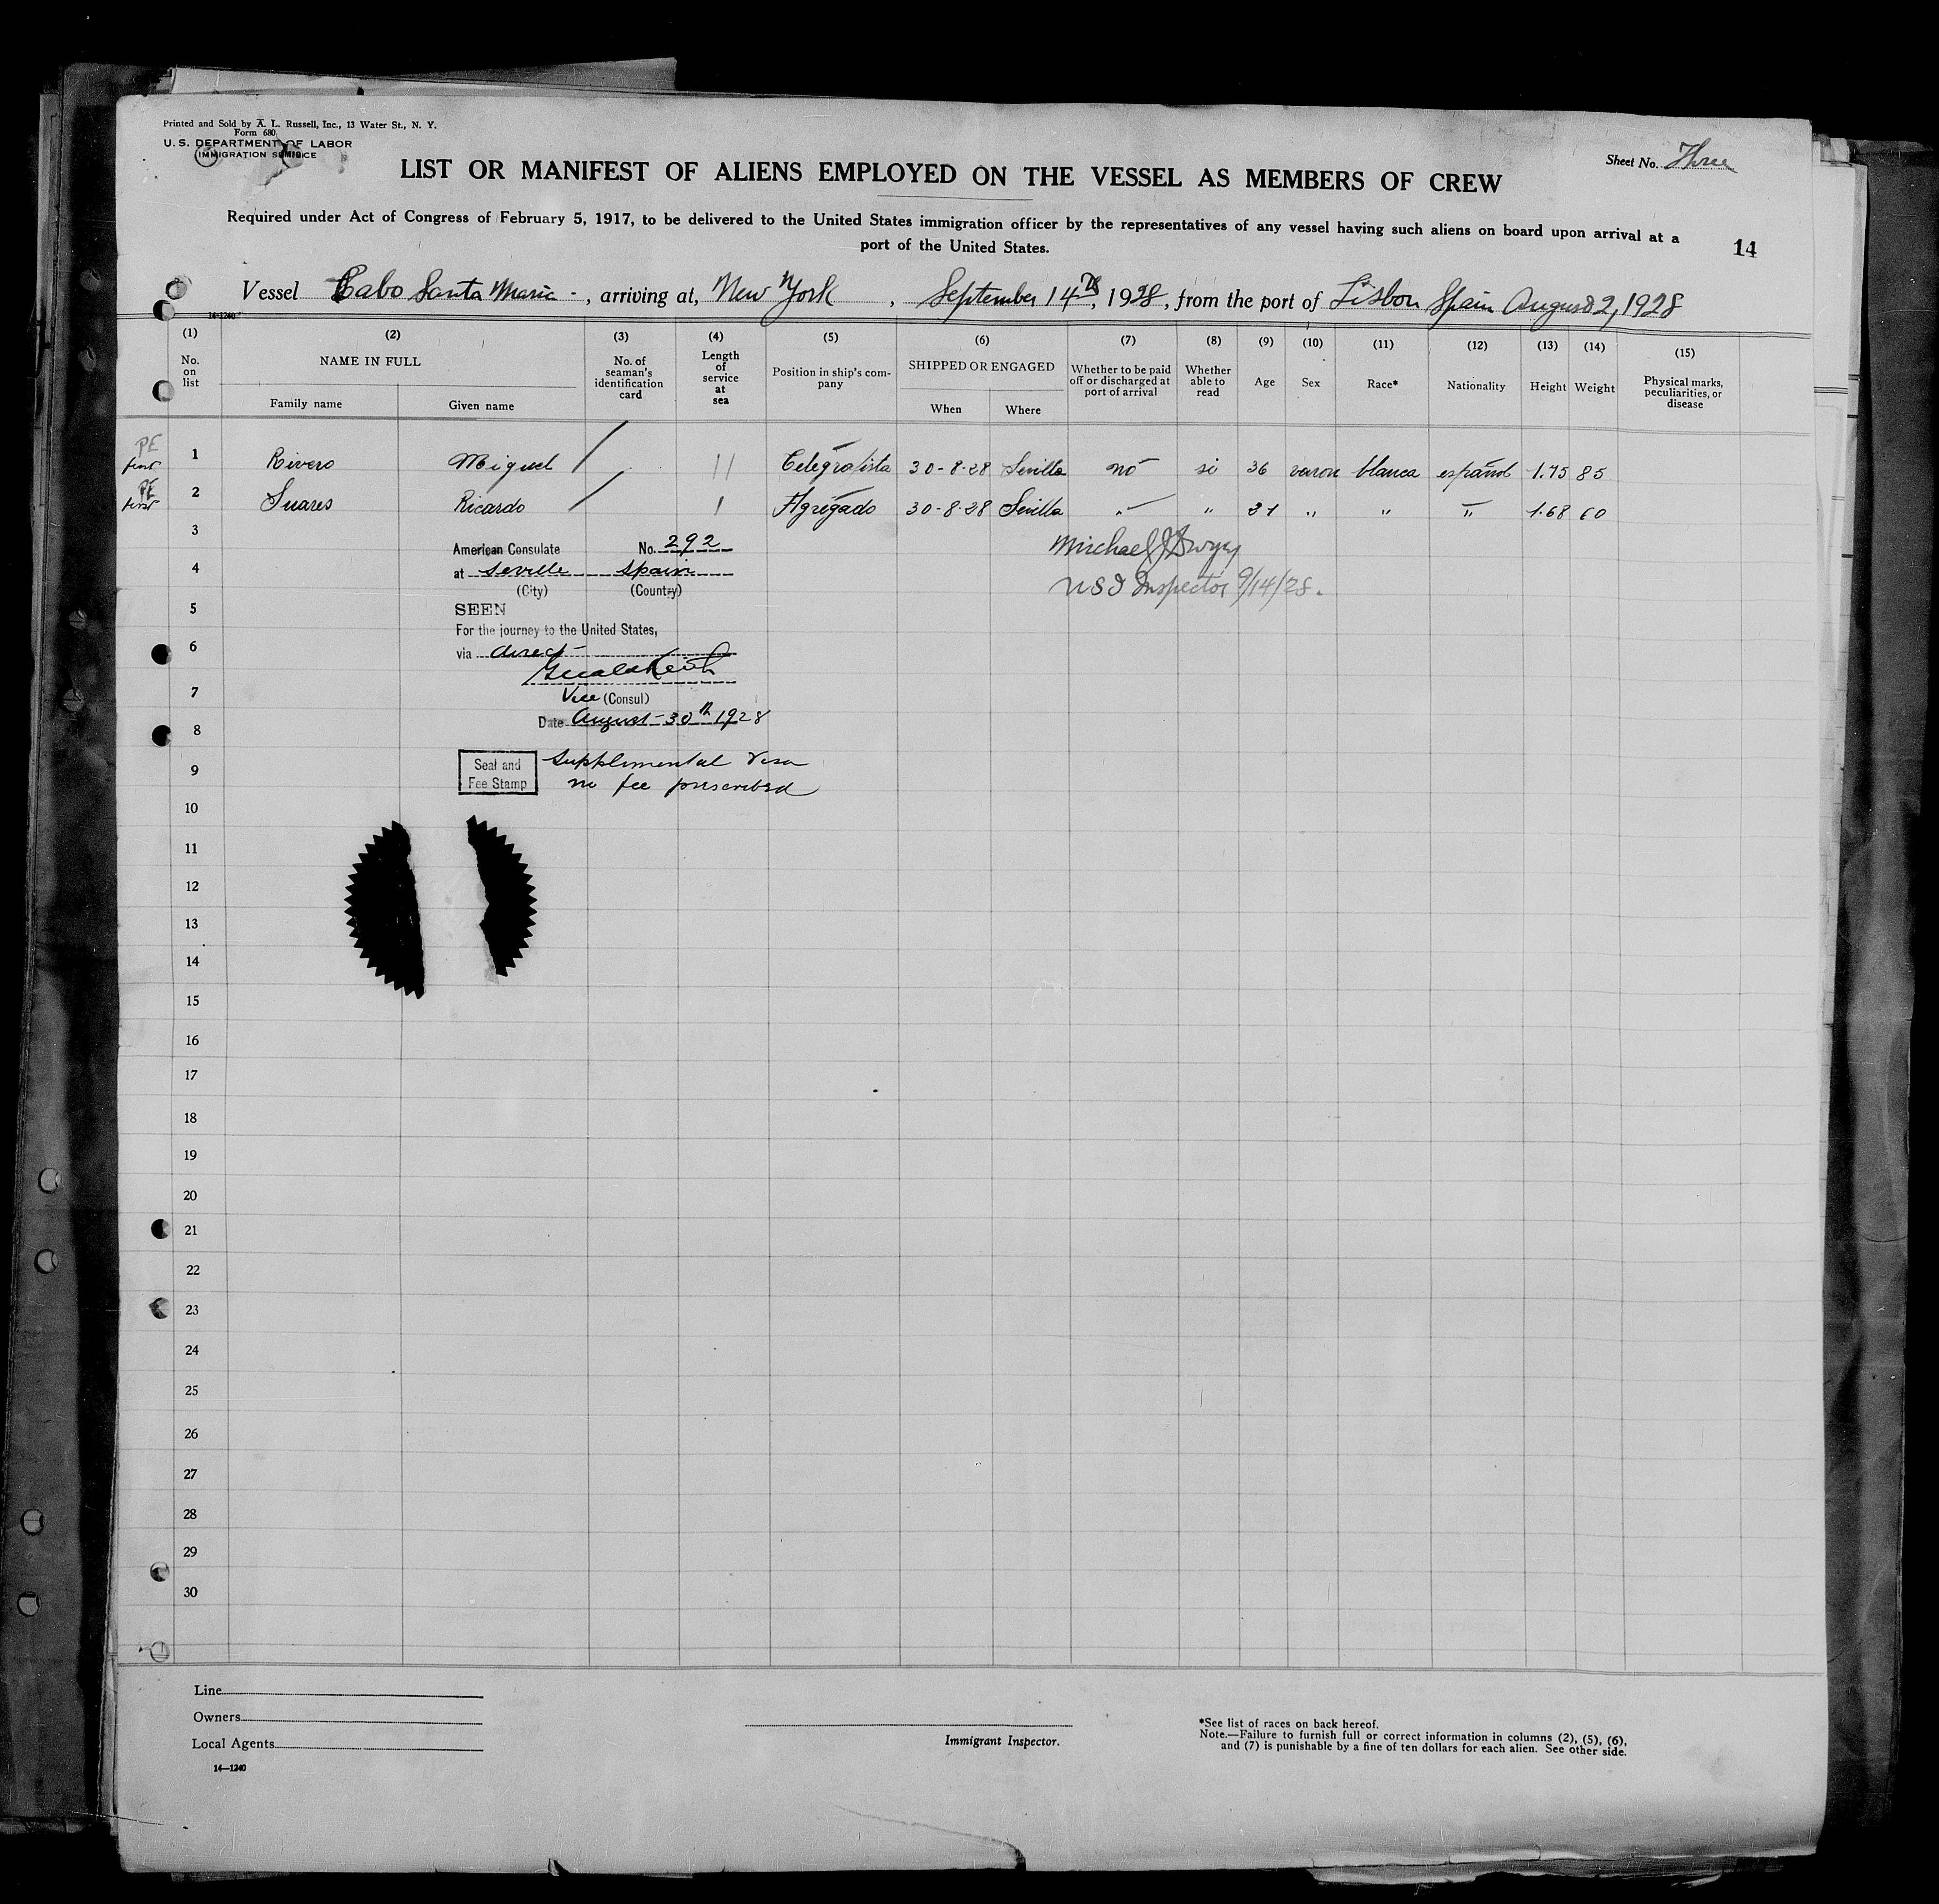 Printed and Sold by A. L. Russell, Inc., 13 Water St., N. Y.
Form 680
U. S. DEPARTMENT OF LABOR
IMMIGRATION SERVICE
Sheet No. Three
LIST OR MANIFEST OF ALIENS EMPLOYED ON THE VESSEL AS MEMBERS OF CREW
Required under Act of Congress of February 5, 1917, to be delivered to the United States immigration officer by the representatives of any vessel having such aliens on board upon arrival at a
port of the United States.
14
Vessel Cabo Santa Maria -, arriving at, New York, September 14th, 1928, from the port of Lisbon Spain August 2, 1928
14-1240
(1) (2) (3) (4) (5) (6) (7) (8) (9) (10) (11) (12) (13) (14) (15)
No. on list
NAME IN FULL
Family name
Given name
No. of seaman's identification card
Length of service at sea
Position in ship's company
SHIPPED OR ENGAGED
When
Where
Whether to be paid off or discharged at port of arrival
Whether able to read
Age
Sex
Race*
Nationality
Height
Weight
Physical marks, peculiarities, or disease
PE
first 1 Rivero Miguel / 11 Telegrafista 30-8-28 Sevilla no si 36 varon blanca español 1.75 85
PE
first 2 Suares Ricardo / 1 Agregado 30-8-28 Sevilla " " " " " 1.68 60
3
American Consulate No. 292
Michael J Dwyer
4
at Seville Spain
(City) (Country)
USI Inspector 9/14/28.
5
SEEN
For the journey to the United States,
6
via direct
7
Vice (Consul)
Date August 30th 1928
8
9
Seal and
Fee Stamp
Supplimental visa
no fee prescribed
10
11
12
13
14
15
16
17
18
19
20
21
22
23
24
25
26
27
28
29
30
Line
Owners
Local Agents
14—1240
Immigrant Inspector.
*See list of races on back hereof.
Note.—Failure to furnish full or correct information in columns (2), (5), (6),
and (7) is punishable by a fine of ten dollars for each alien. See other side.